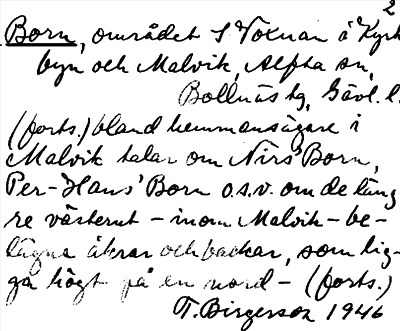 2
Born, området S Voxnan å Kyrk
byn och Malvik, Alfta sn,
Bollnäs tg, Gävl. l.
(forts.) bland hemmansägare i
Malvik talar om Nirs' Born,
Per-Hans' Born o.s.v. om de läng
re västerut - inom Malvik - be-
lägna åkrar och backar, som lig-
ga högt på en nord - (forts.)
T. Birgerson 1946